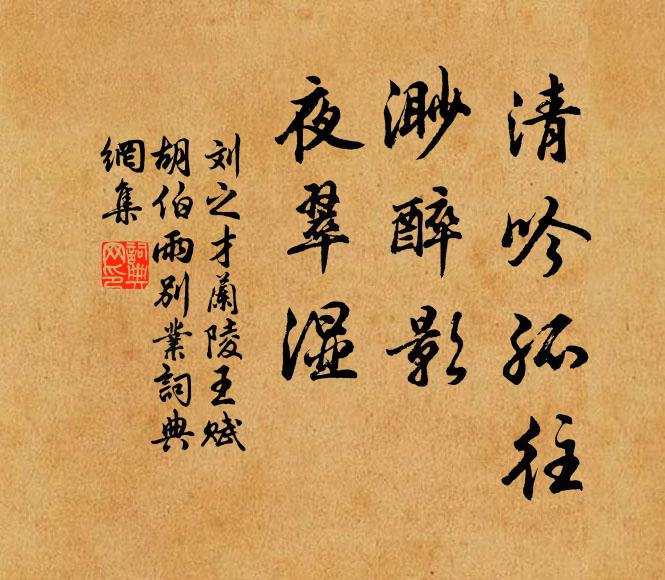 清吟孤往
渺醉影
夜翠湿
刘之才蘭陵王赋
胡伯雨别業詞典
網集
詞典
网印